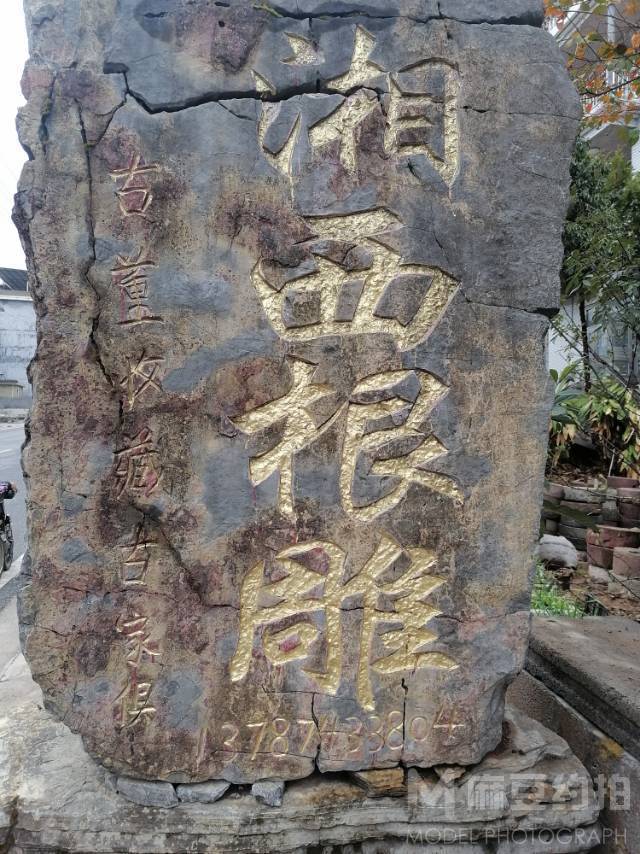 湘西根雕
古董收藏古家俱
13787433804
麻豆约拍
MODEL PHOTOGRAPH